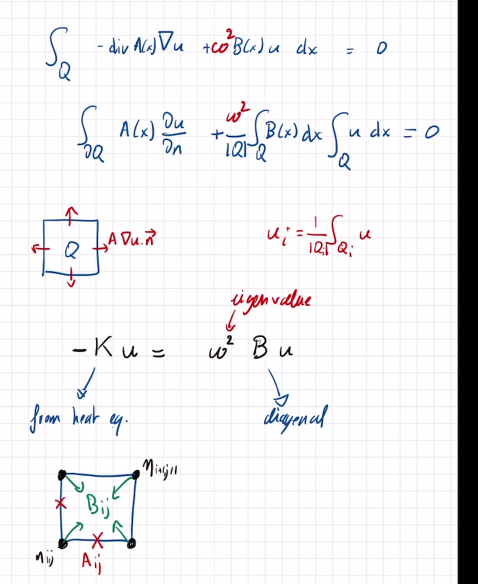 ∫_Q -div A(x)∇u + ω² B(x) u dx = 0
∫_∂Q A(x) ∂u/∂n + ω²/|Q| ∫_Q B(x) dx ∫_Q u dx = 0
Q A∇u.n⃗
u_i = 1/|Q_i| ∫_Q_i u
eigenvalue
-K u = ω² B u
from heat eq.
diagonal
n_i+1,j+1
B_ij
n_ij
A_ij